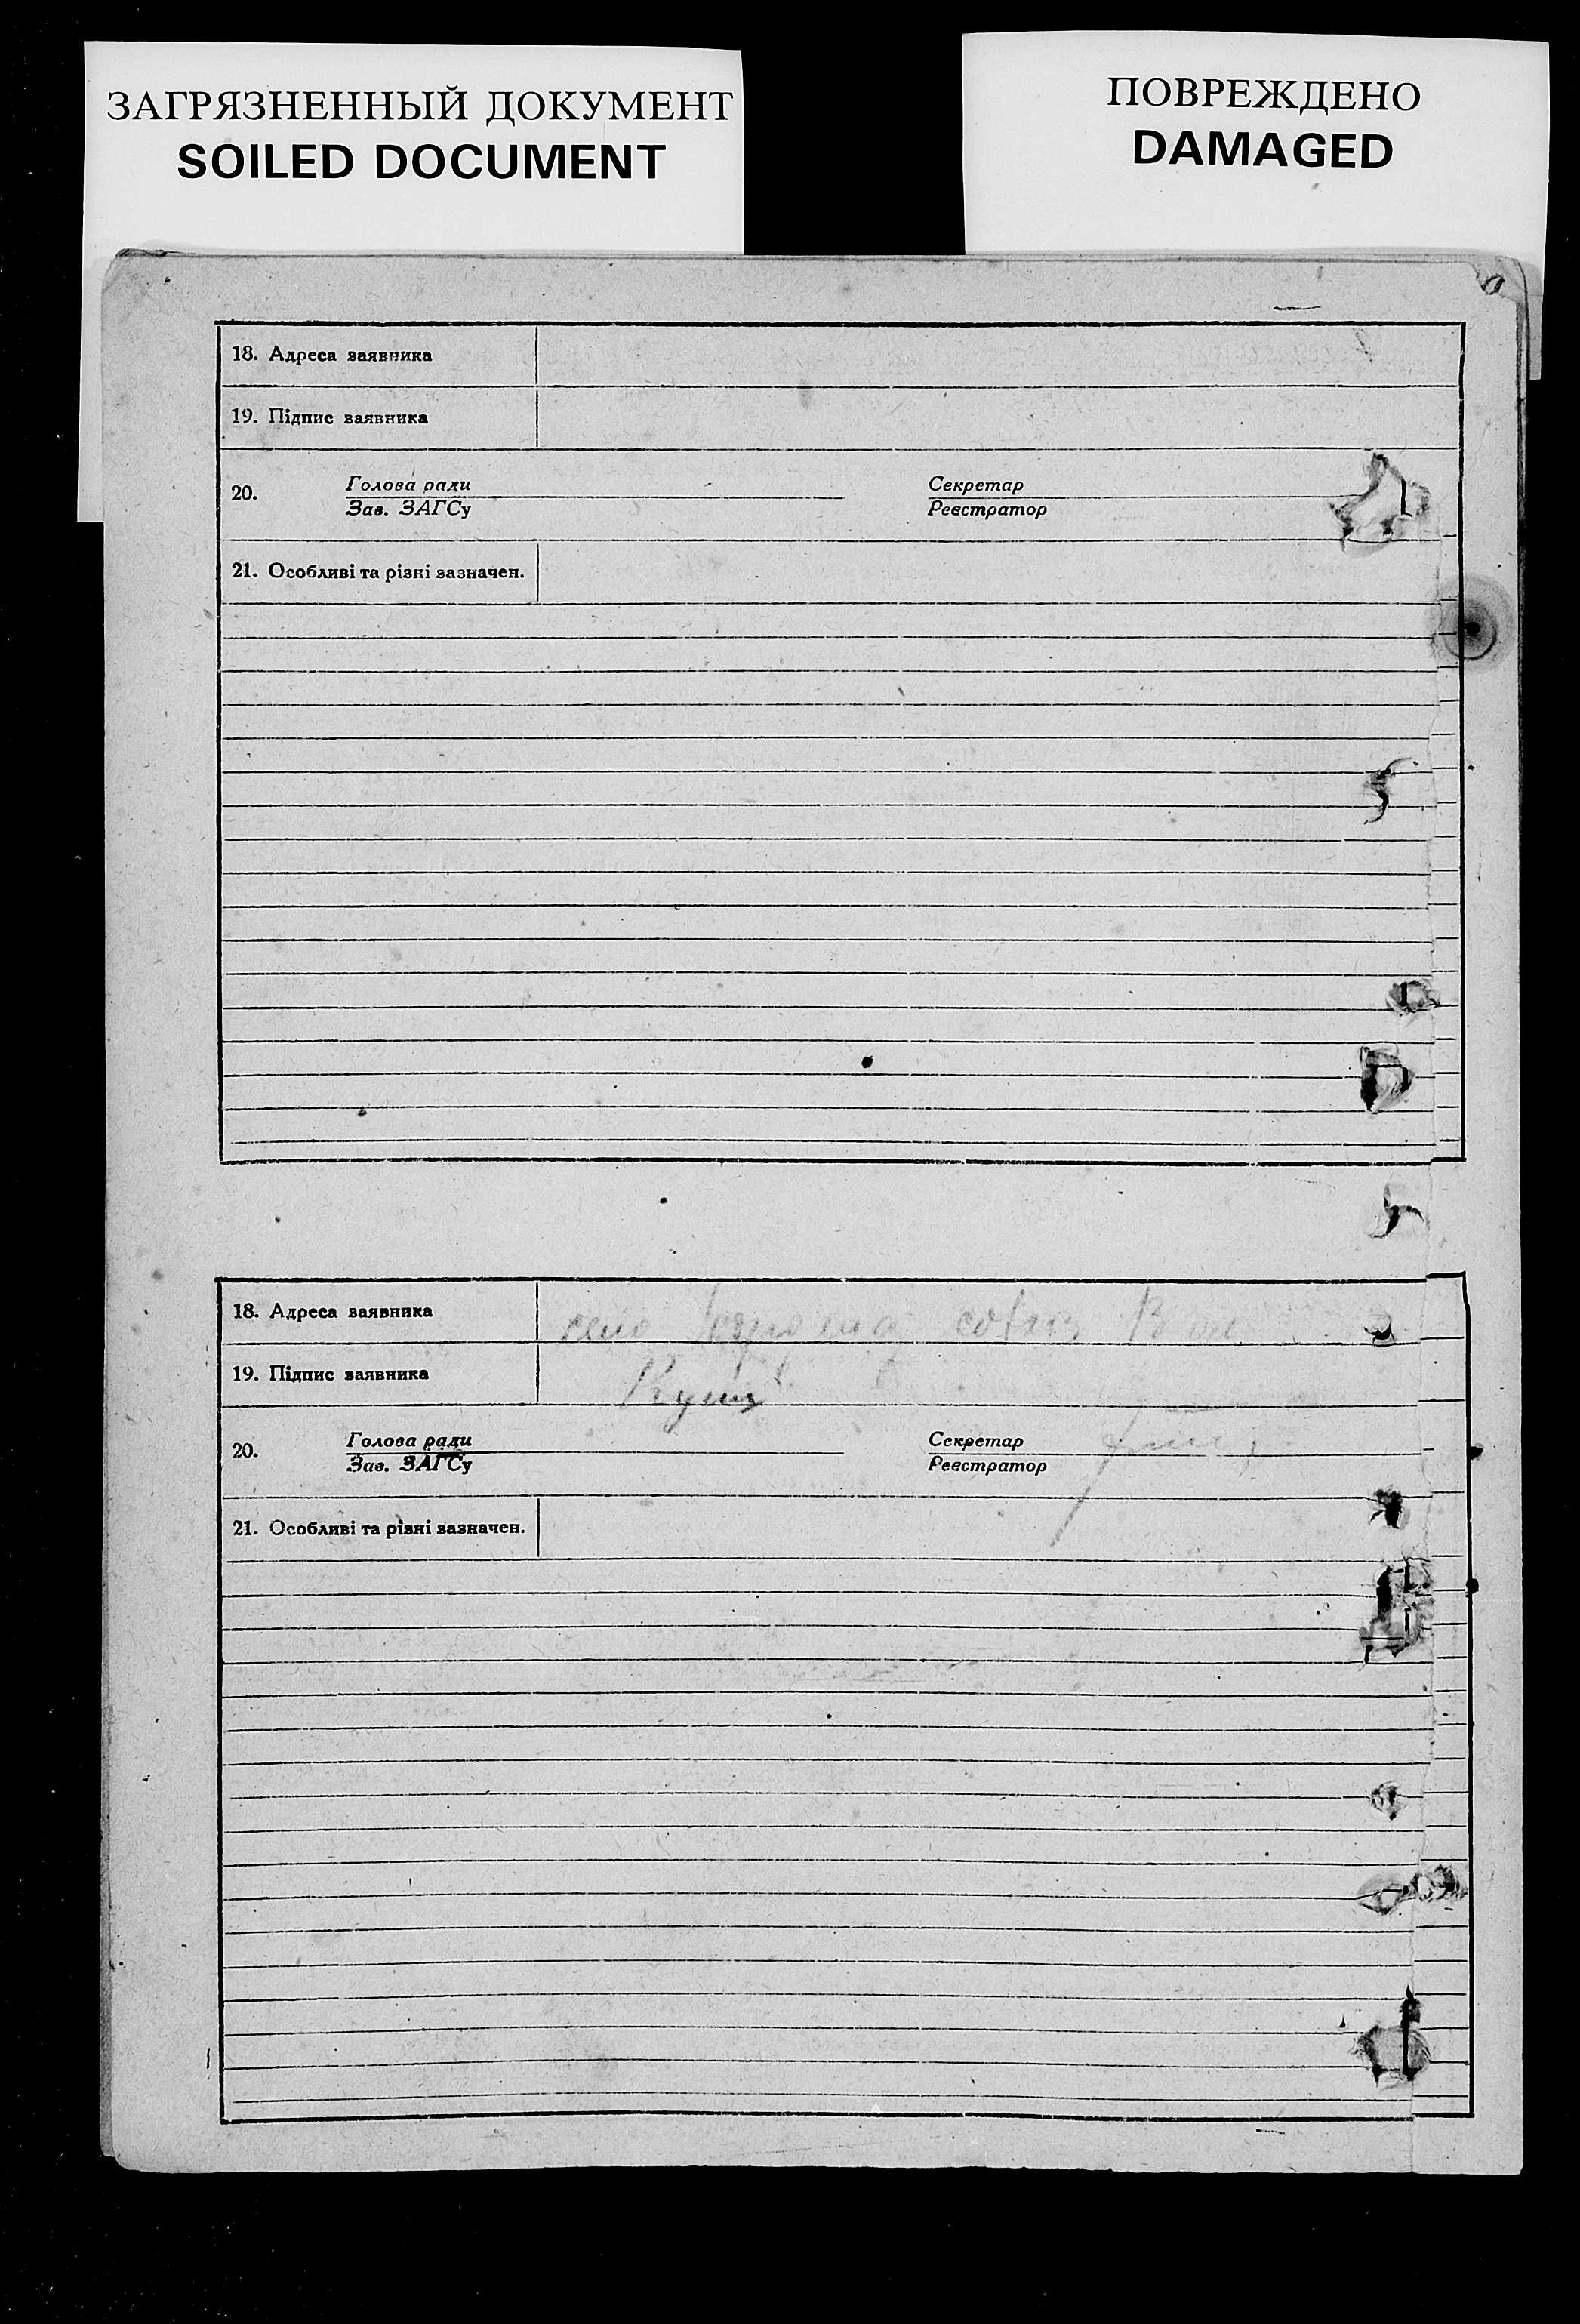 ЗАГРЯЗНЕННЫЙ ДОКУМЕНТ
SOILED DOCUMENT
ПОВРЕЖДЕНО
DAMAGED
18. Адреса заявника
19. Підпис заявника
20. Голова ради Секретар
Зав. ЗАГСу Реєстратор
21. Особливі та різні зазначен.
18. Адреса заявника село
19. Підпис заявника
20. Голова ради Секретар
Зав. ЗАГСу Реєстратор
21. Особливі та різні зазначен.